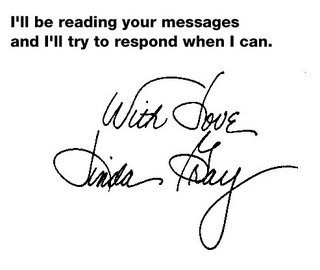 I'll be reading your messages
and I'll try to respond when I can.
With Love
Linda Gray